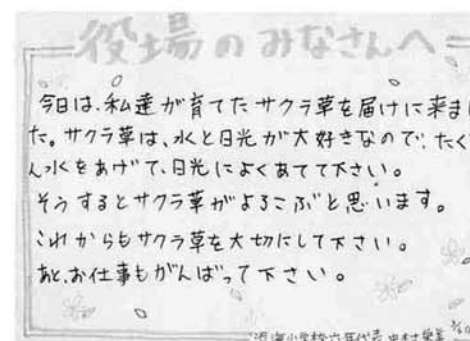 役場のみなさんへ
今日は、私達が育てたサクラ草を届けに来まし
た。サクラ草は、水と日光が大好きなので、たく
ん水をあげて、日光によくあてて下さい。
そうするとサクラ草がよろこぶと思います。
これからもサクラ草を大切にして下さい。
あと、お仕事もがんばって下さい。
小学校六年代表